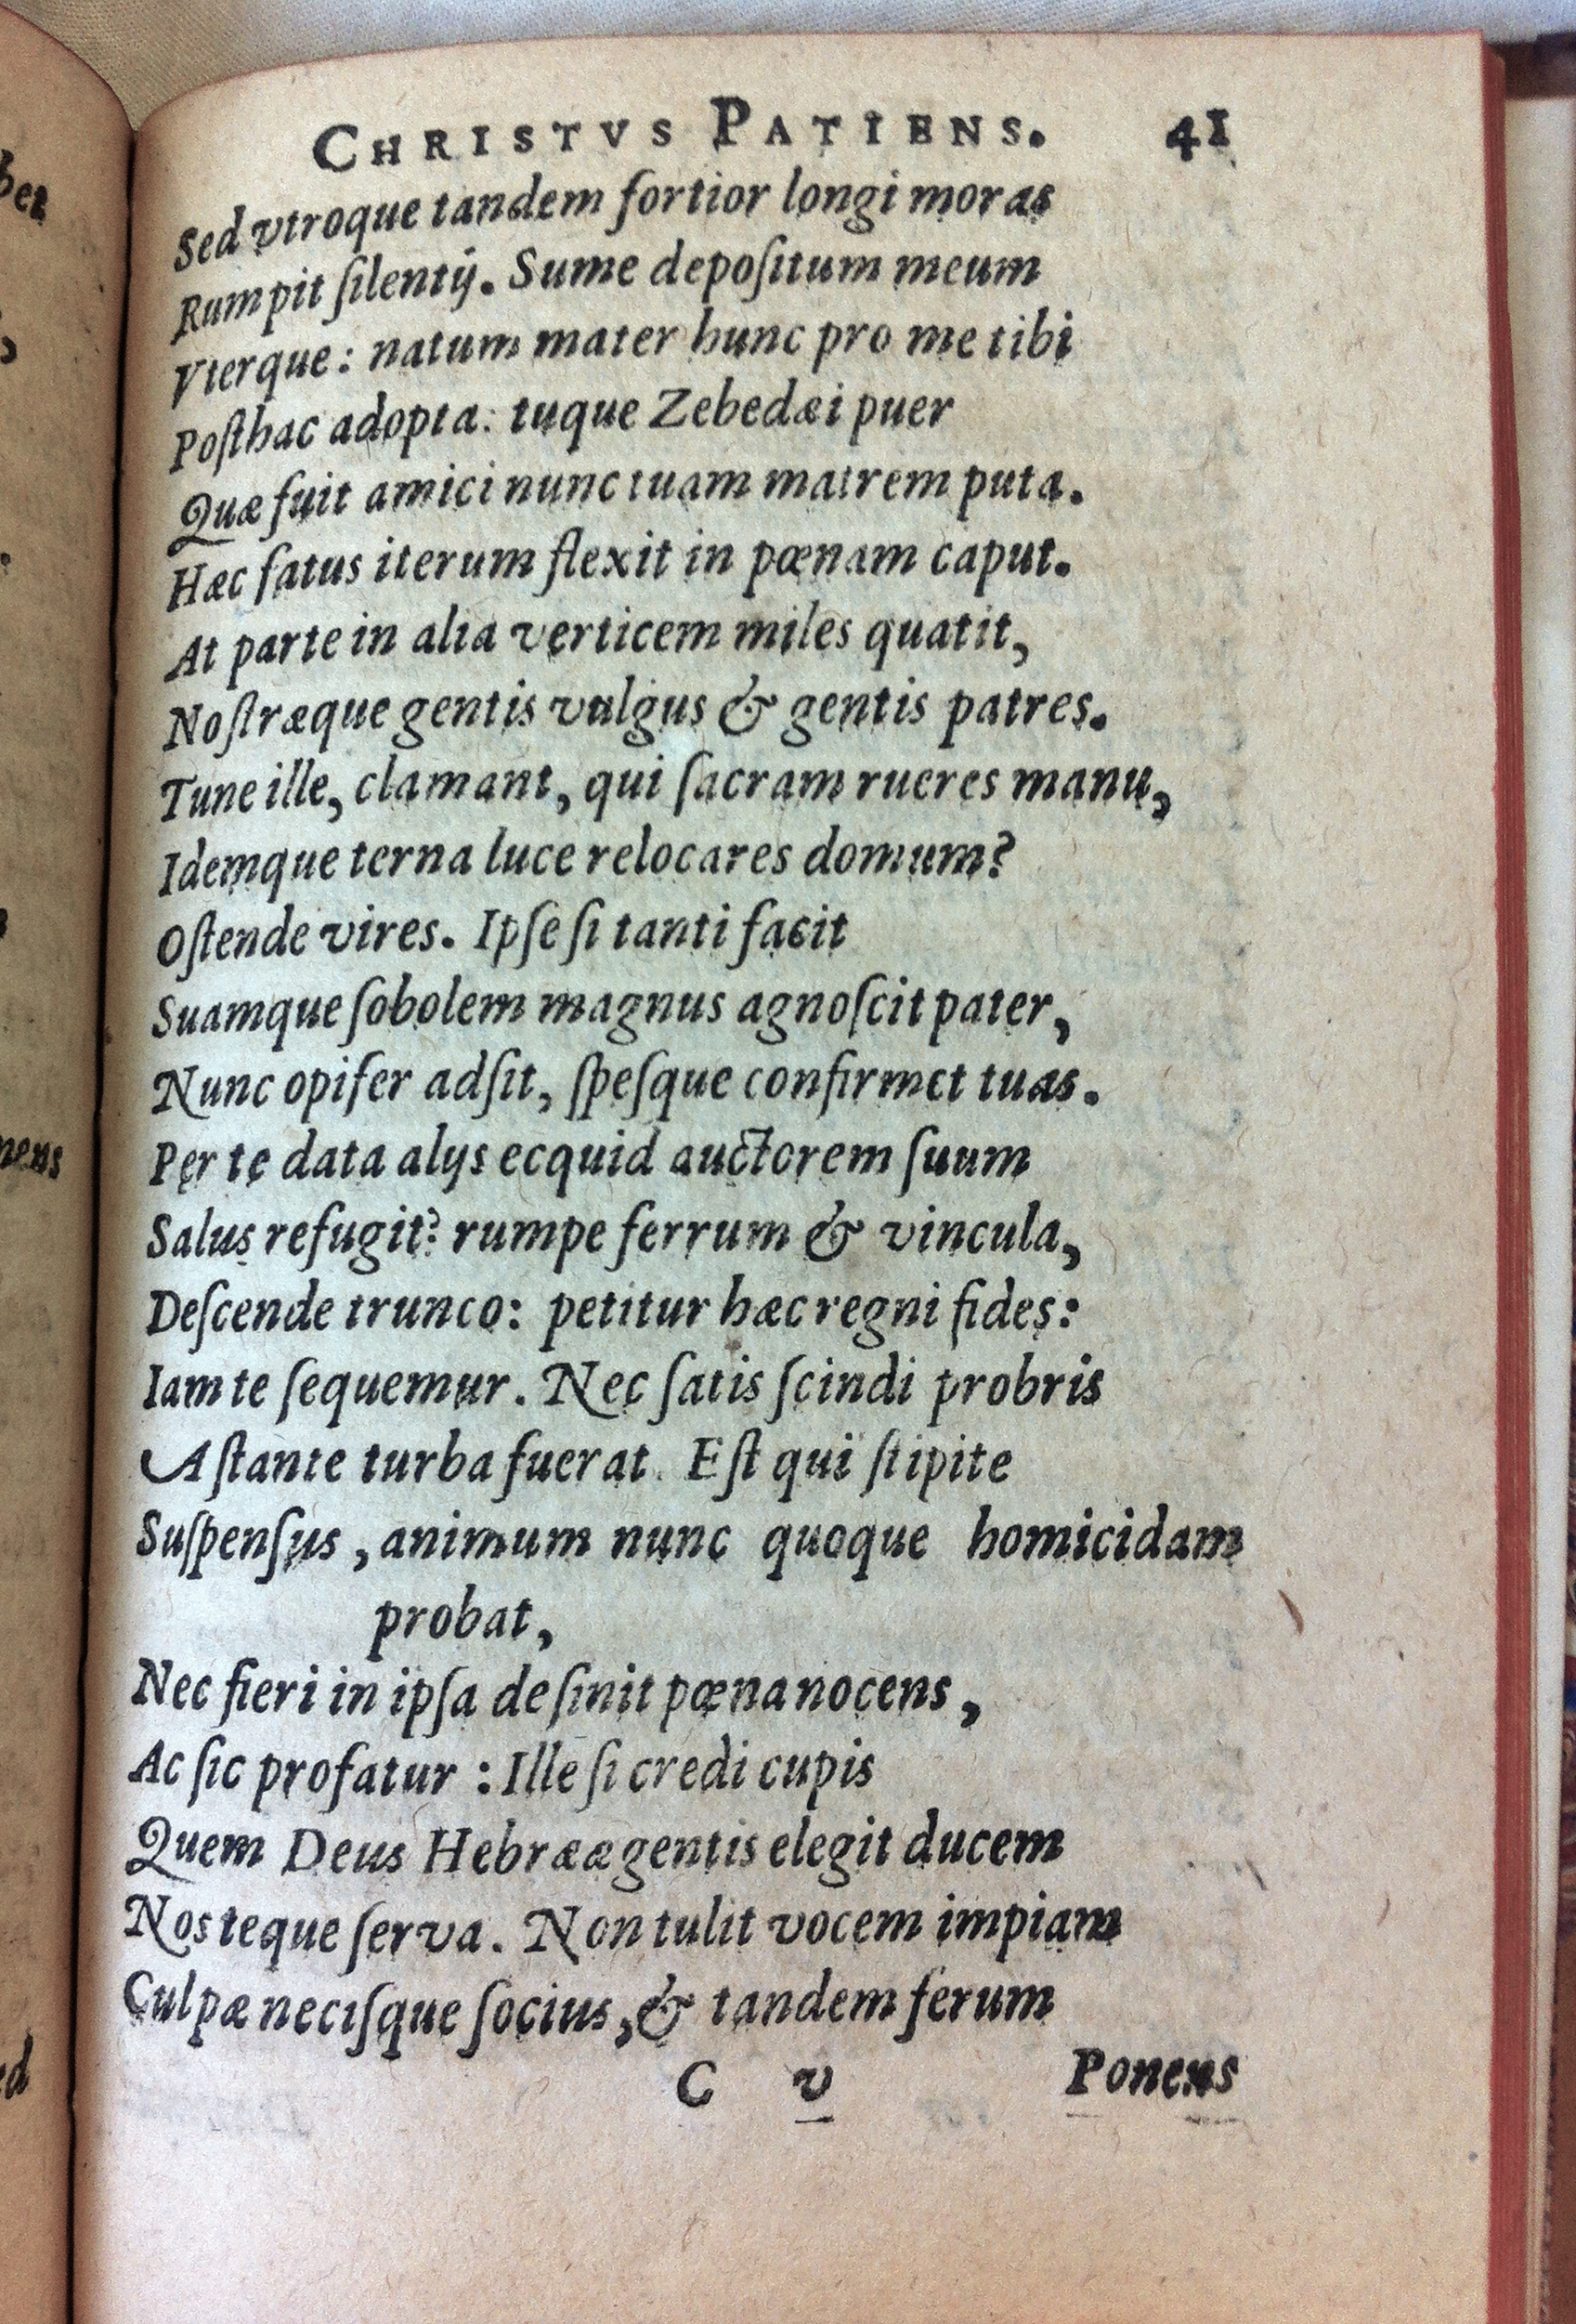 CHRISTVS PATIENS. 41
Sed vtroque tandem fortior longi moras
Rumpit ſilentij. Sume depoſitum meum
Vterque: natum mater hunc pro me tibi
Poſthac adopta: tuque Zebedæi puer
Quæ fuit amici nunc tuam matrem puta.
Hæc fatus iterum flexit in pœnam caput.
At parte in alia verticem miles quatit,
Noſtræque gentis vulgus & gentis patres.
Tune ille, clamant, qui ſacram rueres manu,
Idemque terna luce relocares domum?
Oſtende vires. Ipſe ſi tanti facit
Suamque ſobolem magnus agnoſcit pater,
Nunc opifer adſit, ſpeſque confirmet tuas.
Per te data alijs ecquid auctorem ſuum
Salus refugit? rumpe ferrum & vincula,
Deſcende trunco: petitur hæc regni fides:
Iam te ſequemur. Nec ſatis ſcindi probris
Aſtante turba fuerat. Eſt qui ſtipite
Suſpenſus, animum nunc quoque homicidam
probat,
Nec fieri in ipſa deſinit pœna nocens,
Ac ſic profatur: Ille ſi credi cupis
Quem Deus Hebrææ gentis elegit ducem
Nos teque ſerva. Non tulit vocem impiam
Culpæ neciſque ſocius, & tandem ferum
C v Ponens